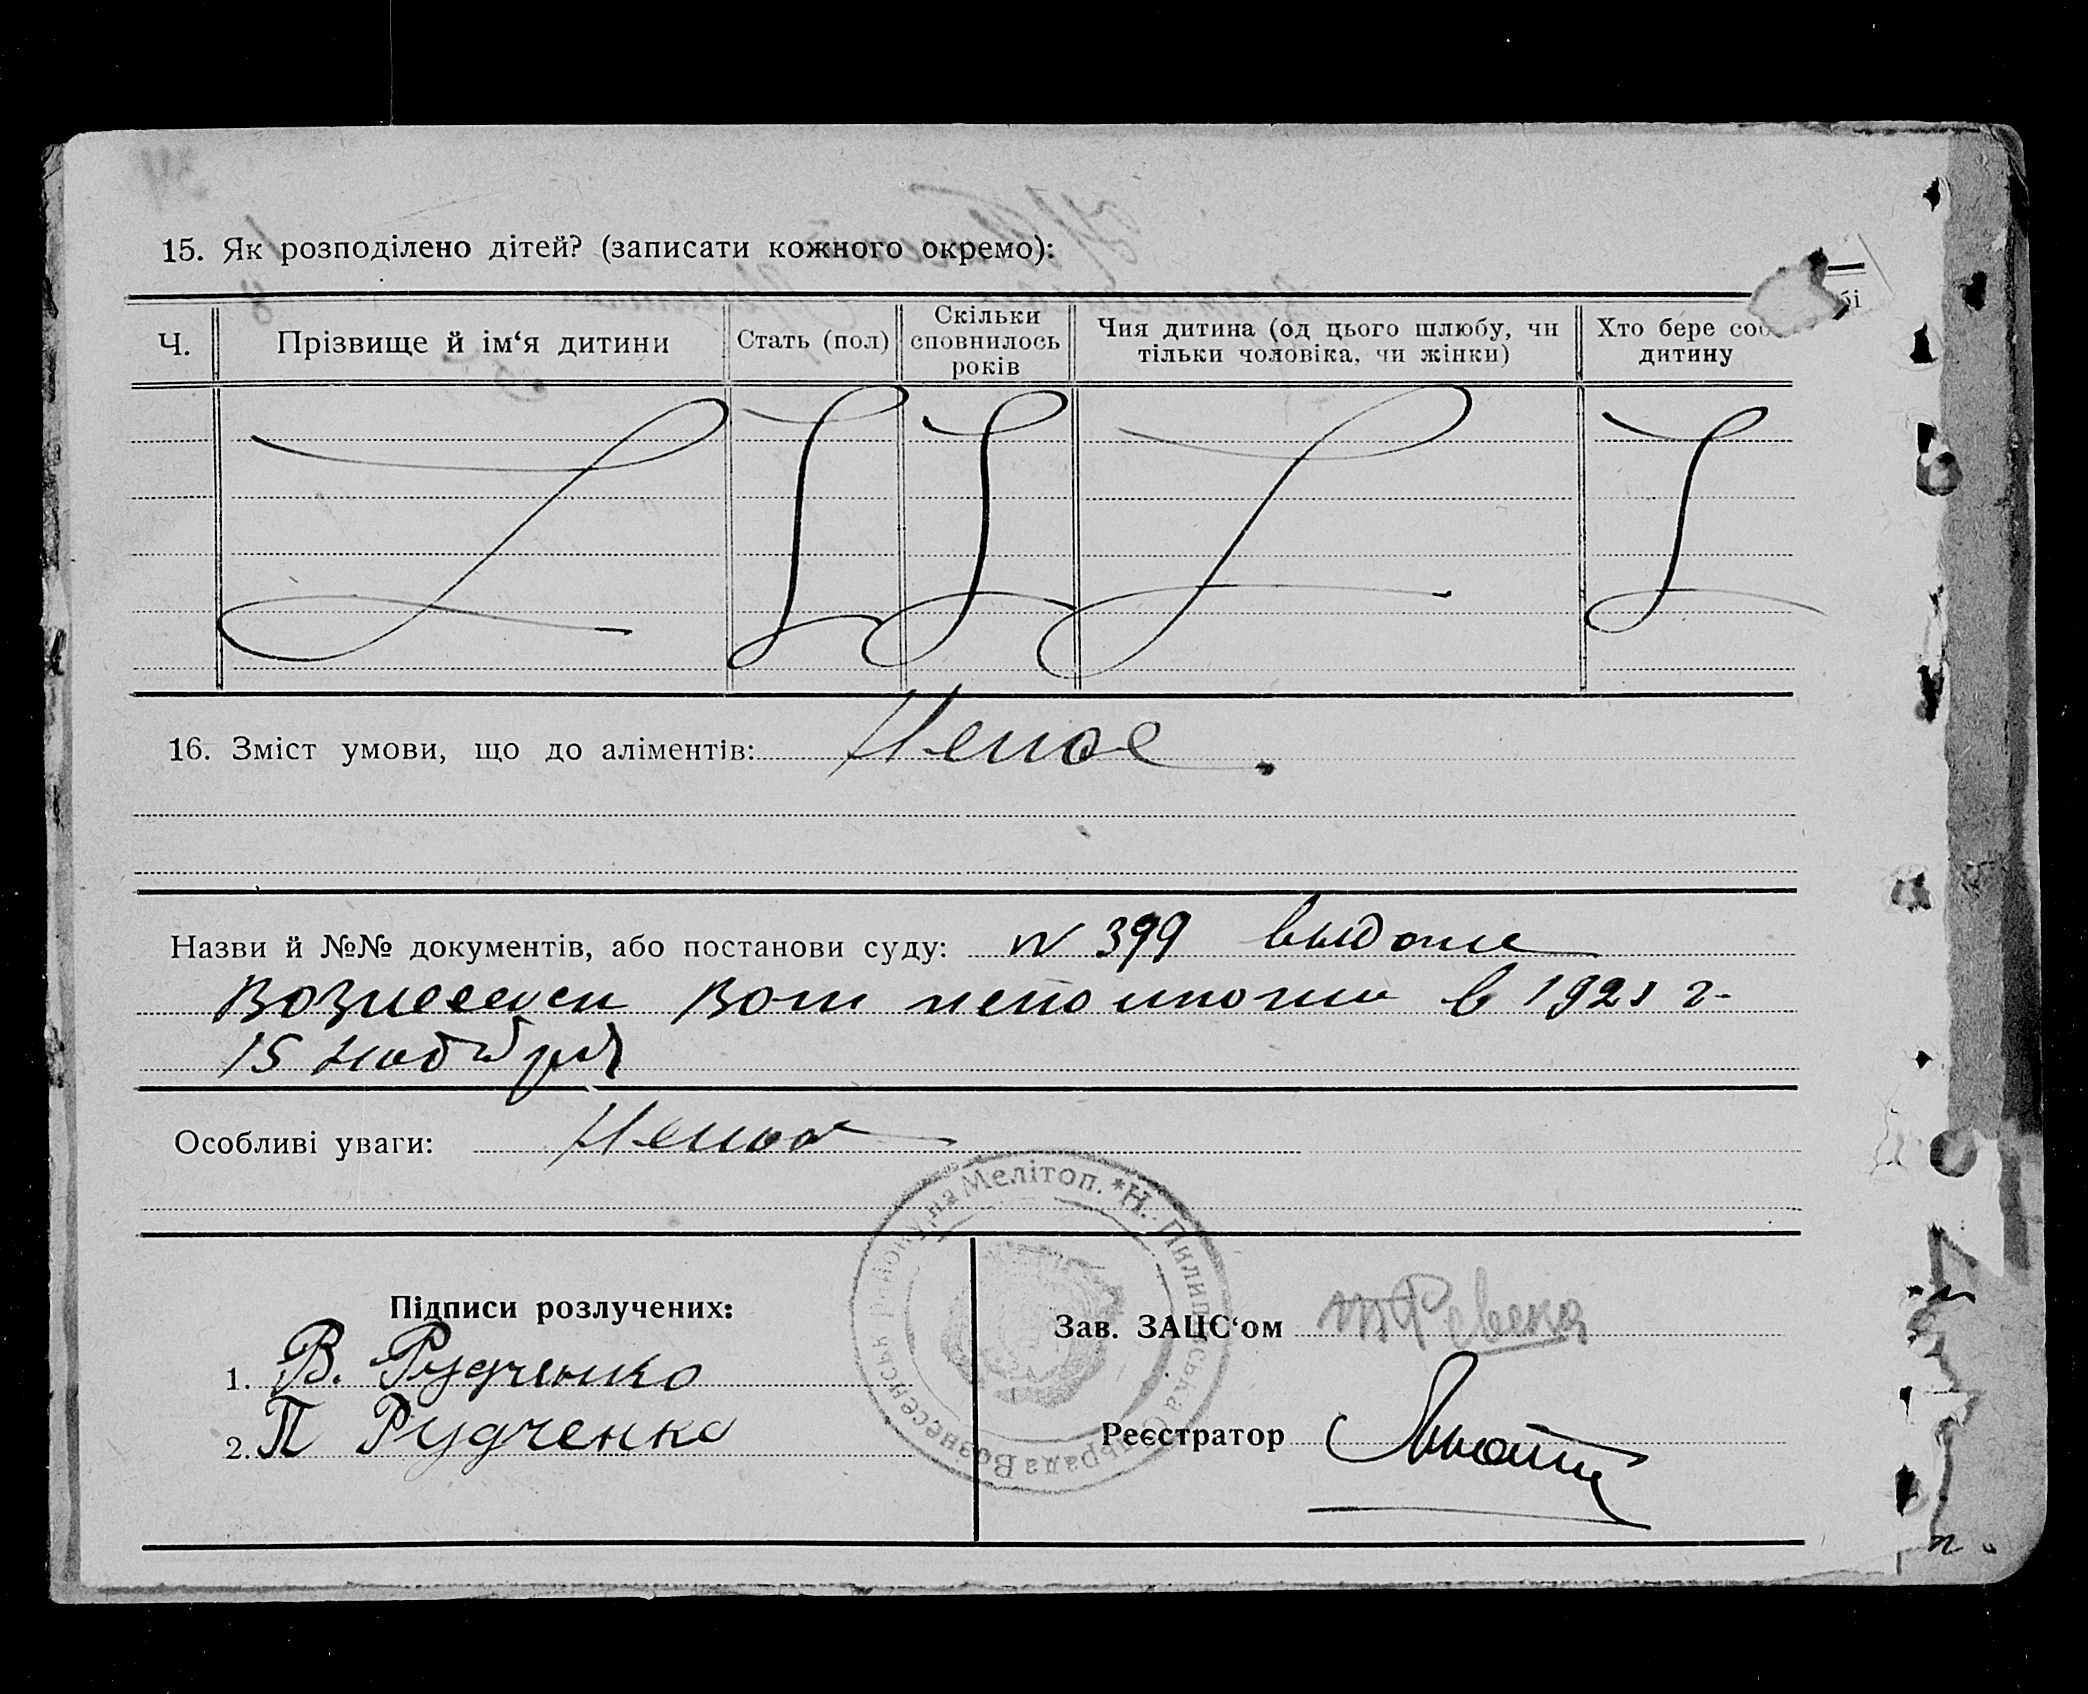 15. Як розподілено дітей? (записати кожного окремо):
Ч. Прізвище й ім‘я дитини Стать (пол) Скільки сповнилось років Чия дитина (од цього шлюбу, чи тільки чоловіка, чи жінки) Хто бере собі дитину
16. Зміст умови, що до аліментів: Немае.
Назви й №№ документів, або постанови суду: № 399 выдане
в 1921 г-
15 ноября
Особливі уваги: Немае
Мелітоп. * Н.-Пилипівська Сільрада Вознесенськ. району, на
Підписи розлучених:
1. В. Рудченко
2. П Рудченко
Зав. ЗАЦС‘ом
Реєстратор